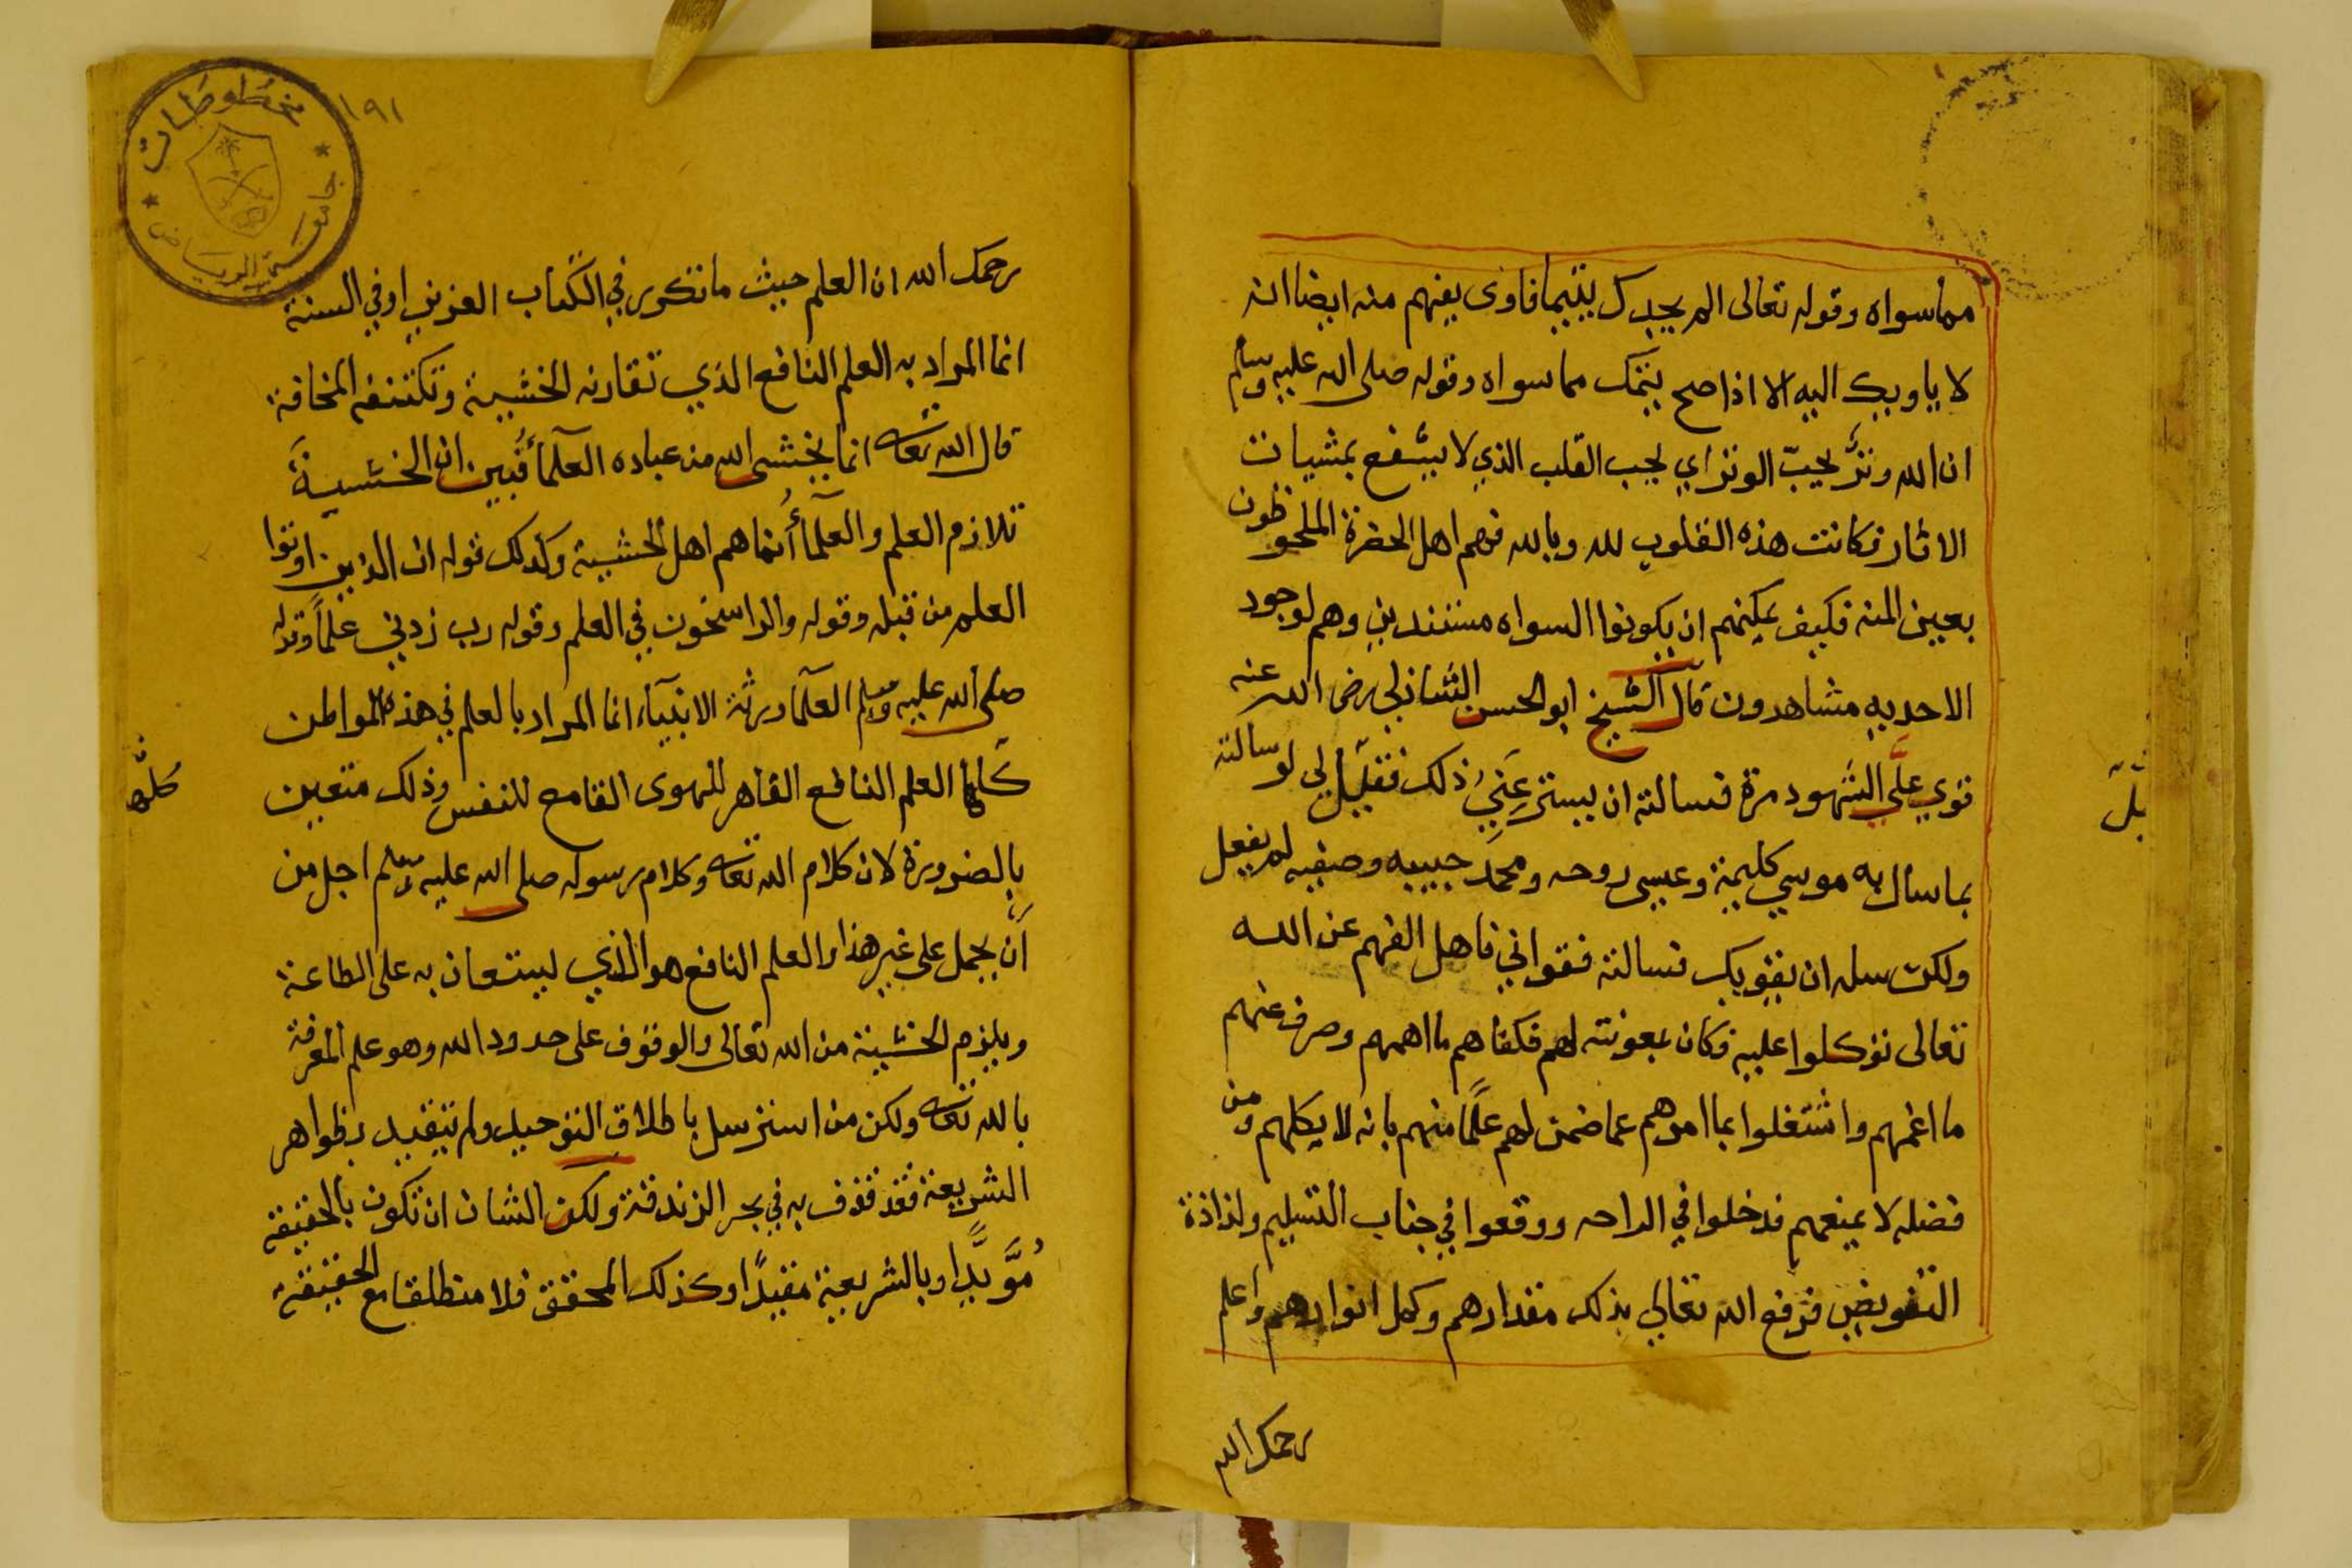 مماسواه وقوله تعالى الم يجدك يتيما فاوى يفهم منه ايضا انه
لا ياويك اليه الا اذا صح يتمك مما سواه وقوله صلى الله عليه وسلم
ان الله وترٌ يحبّ الوتر اي يحب القلب الذي لا يشفع بمشيات
الاثار فكانت هذه القلوب لله وبالله فهم اهل الحضرة الملحوظون
بعين المنه فكيف يمكنهم ان يكونوا السواه مستندين وهم لوجود
الاحديه مشاهدون قال الشيخ ابو الحسن الشاذلي رضى الله عنه
قوي علَّي الشهود مرة فسالته ان يستر عَنيُ ذلك فقيل لي لو سالته
بما سال به موسي كليمة وعيسى روحه ومحمد حبيبه وصفيه لم يفعل
بل
ولكن سله ان يقويك فسالته فقواني فاهل الفهم عن الله
تعالى توكلوا عليه فكان بمعونته لهم فكفاهم ما اهمهم وصرف عنهم
ما اغمهم واشتغلوا بما امرهم عما ضمن لهم علمًا منهم بانه لا يكلهم ومن
فضله لا يمنعهم فدخلوا في الراحه ووقعوا في جناب التسليم ولذاذة
التفويض فرفع الله تعالي بذلك مقدارهم وكمل انوارهم واعلم
رحمك الله
١٩١
مخطوطات
جامعة الرياض
رحمك الله ان العلم حيث ما تكرر في الكتاب العزيز او في السنة
انما المراد به العلم النافع الذي تقارنه الخشية وتكتنفه المخافة
قال الله تعالى انما يخشى الله من عباده العلمآء فبين ان الخشية
تلازم العلم والعلمآء انما هم اهل الخشية وكذلك قوله ان الذين اوتوا
العلم من قبله وقوله والراسخون في العلم وقوله رب زدني علمًا وقوله
صلى الله عليه وسلم العلمآ ورثة الانبيآء انما المراد بالعلم في هذه المواطن
كلها العلم النافع القاهر للهوى القامع للنفس وذلك متعين
كلها
بالضرورة لان كلام الله تعالى وكلام رسوله صلى الله عليه وسلم اجل من
أن يحمل على غير هذا والعلم النافع هو الذي يستعان به على الطاعة
ويلزم الخشية من الله تعالى والوقوف على حدود الله وهو علم المعرفة
بالله تعالى ولكن من استرسل باطلاق التوحيد ولم يتقيد بظواهر
الشريعة فقد قذف به في بحر الزندقة ولكن الشان ان تكون بالحقيقة
مُوَّيدًا وبالشريعة مقيدًا وكذلك المحقق فلا منطلقا مع الحقيقة